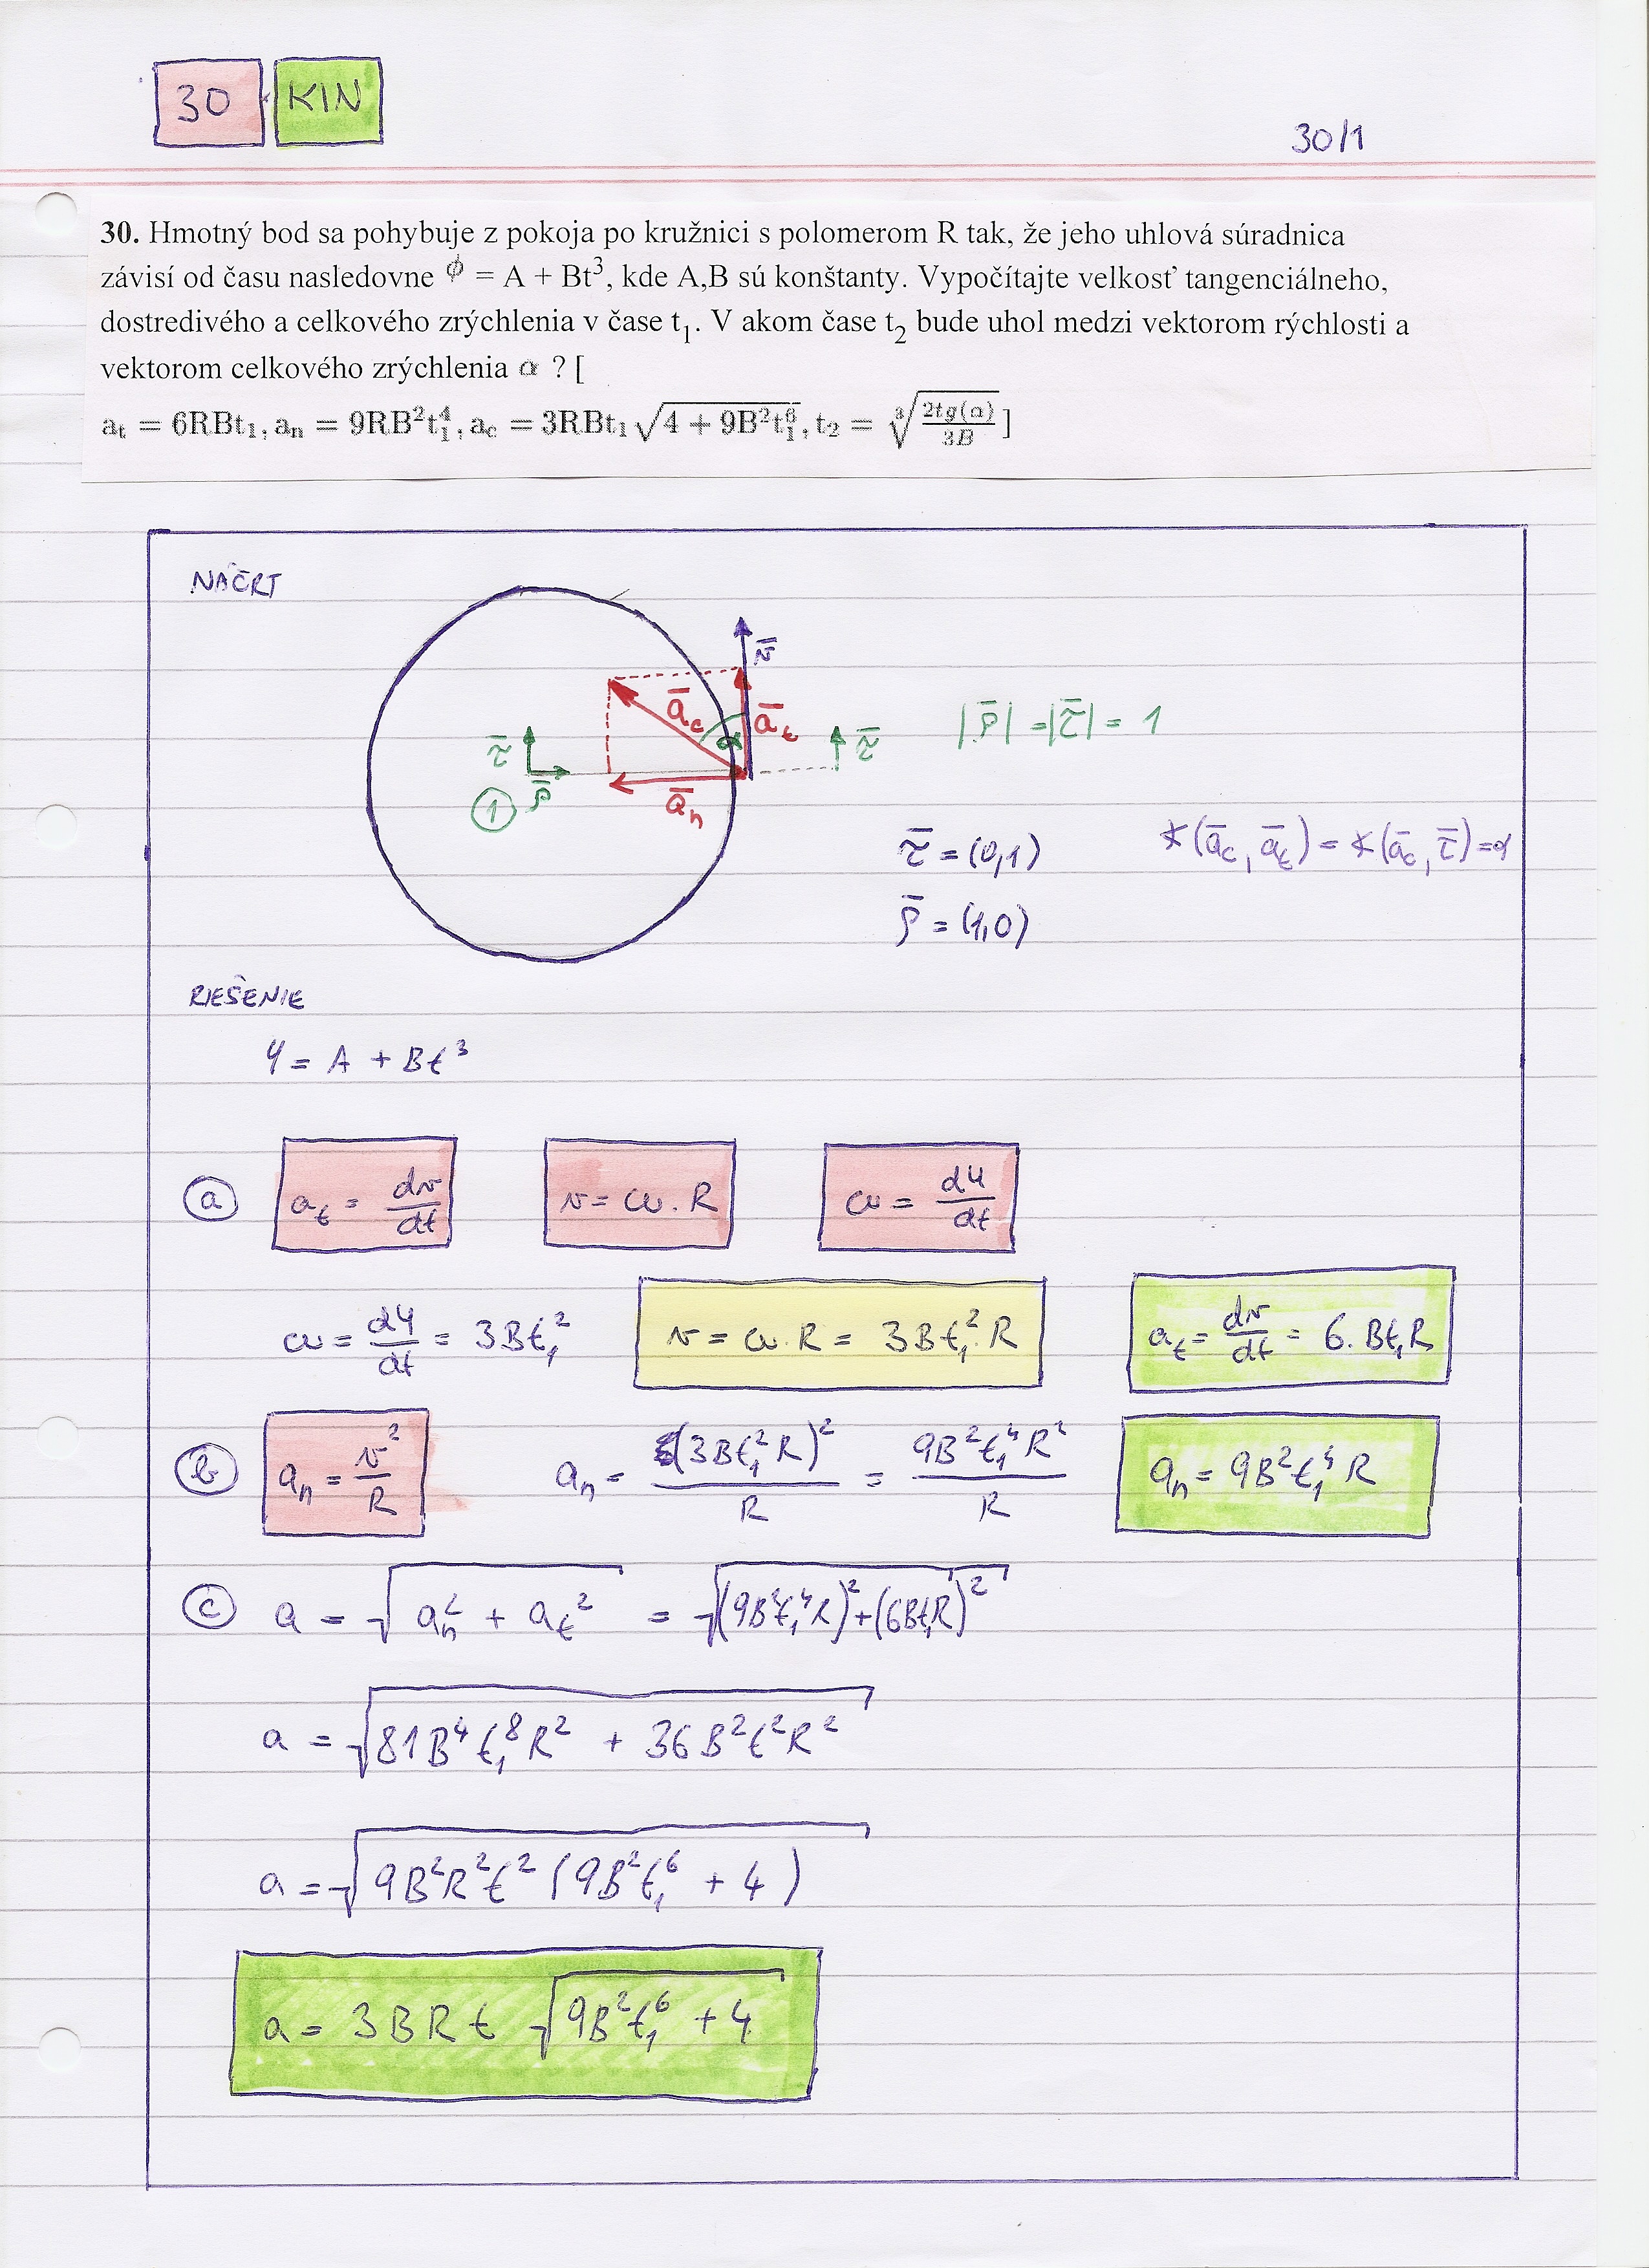 30 KIN
30/1
30. Hmotný bod sa pohybuje z pokoja po kružnici s polomerom R tak, že jeho uhlová súradnica
závisí od času nasledovne ϕ = A + Bt³, kde A,B sú konštanty. Vypočítajte velkosť tangenciálneho,
dostredivého a celkového zrýchlenia v čase t₁. V akom čase t₂ bude uhol medzi vektorom rýchlosti a
vektorom celkového zrýchlenia α ? [
aₜ = 6RBt₁, aₙ = 9RB²t₁⁴, a_c = 3RBt₁√(4 + 9B²t₁⁶), t₂ = ∛(2tg(α)/3B) ]
NÁČRT
v̄
ā_c āₜ α
τ̄ τ̄ |ρ̄| = |τ̄| = 1
ρ̄ āₙ
1
τ̄ = (0,1) ∢(ā_c, āₜ) = ∢(ā_c, τ̄) = α
ρ̄ = (1,0)
RIEŠENIE
φ = A + Bt³
a aₜ = dv/dt v = ω . R ω = dφ/dt
ω = dφ/dt = 3Bt₁² v = ω . R = 3Bt₁² R aₜ = dv/dt = 6. Bt₁R
b aₙ = v²/R aₙ = (3Bt₁²R)²/R = 9B²t₁⁴R²/R aₙ = 9B²t₁⁴R
c a = √(aₙ² + aₜ²) = √((9B²t₁⁴R)² + (6Bt₁R)²)
a = √(81B⁴t₁⁸R² + 36B²t²R²)
a = √(9B²R²t²(9B²t₁⁶ + 4))
a = 3BRt √(9B²t₁⁶ + 4)